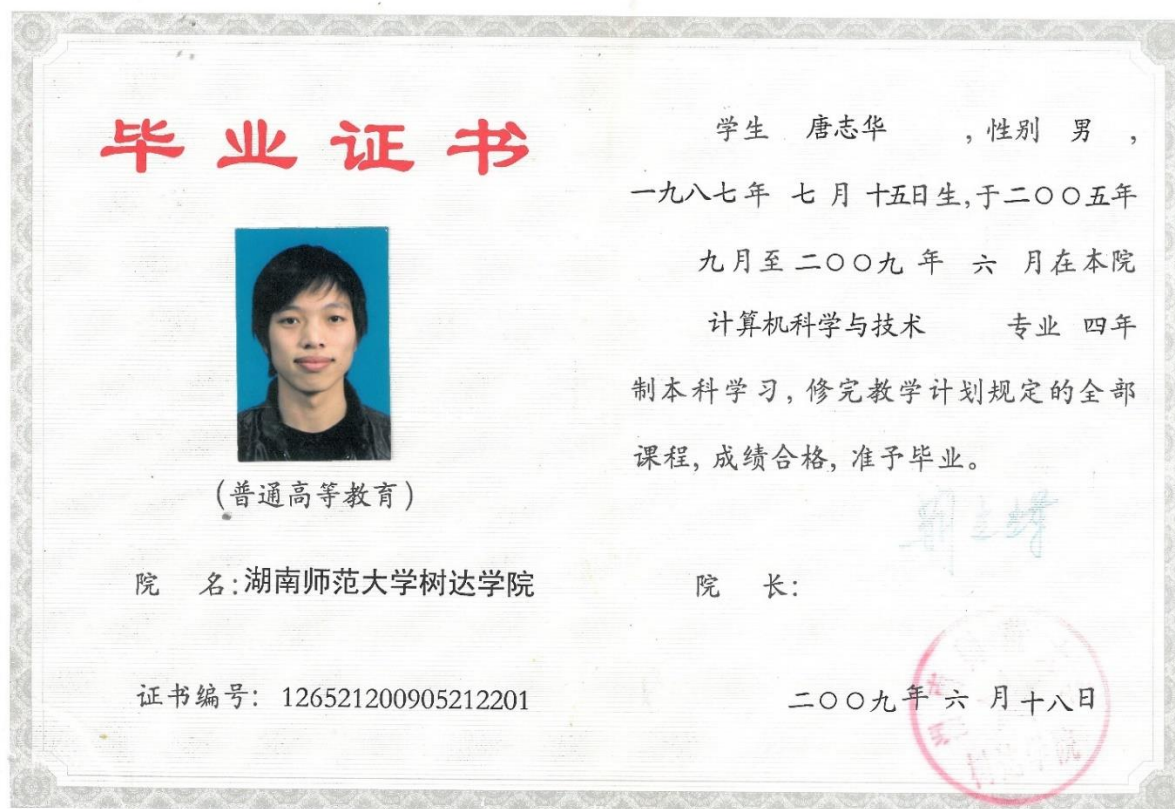 毕业证书
(普通高等教育)
院 名:湖南师范大学树达学院
证书编号: 126521200905212201
学生 唐志华 ,性别 男 ,
一九八七年 七 月 十五日生,于二〇〇五年
九月至 二〇〇九 年 六 月在本院
计算机科学与技术 专业 四年
制本科学习, 修完教学计划规定的全部
课程, 成绩合格, 准予毕业。
院 长:
二〇〇九年 六 月 十八日